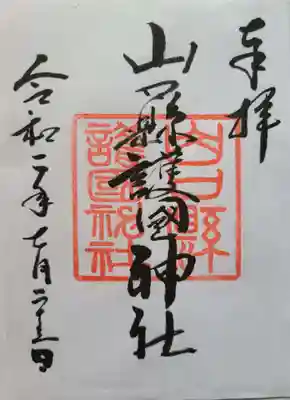 奉拝
山口縣護國神社
山口縣
護國神社
令和二年七月二十三日